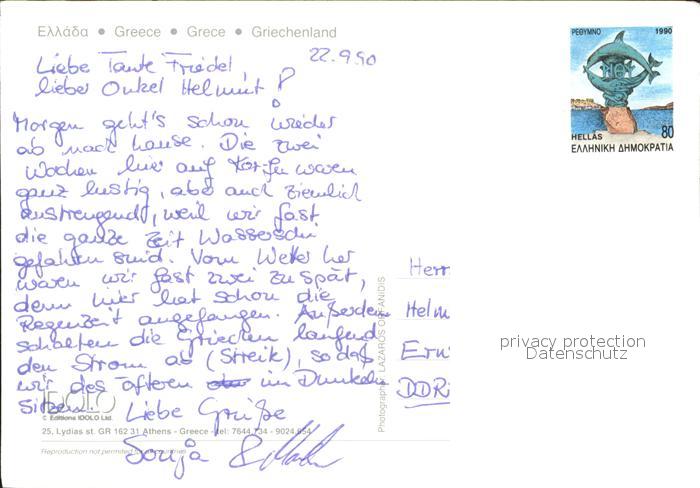 Ελλάδα • Greece • Grece • Griechenland
22.9.90
Liebe Tante Friedel,
lieber Onkel Helmut!
Morgen geht's schon wieder
ab nach hause. Die zwei
Wochen hier auf Korfu waren
ganz lustig, aber auch ziemlich
anstrengend, weil wir fast
die ganze Zeit Wasserschi
gefahren sind. Vom Wetter her
waren wir fast zwei zu spät,
denn hier hat schon die
Regenzeit angefangen. Außerdem
schalten die Griechen laufend
den Strom ab (Streik), so daß
wir des öfteren im Dunkeln
sitzen.
Liebe Grüße
Sonja &
ΡΕΘΥΜΝΟ 1990
HELLAS 80
ΕΛΛΗΝΙΚΗ ΔΗΜΟΚΡΑΤΙΑ
Herr
Helm
DDR
privacy protection
Datenschutz
Photographer: LAZAROS
© Editions IDOLO Ltd.
25, Lydias st. GR 162 31 Athens - Greece - tel: 7644 734 - 9024
Reproduction not permitted